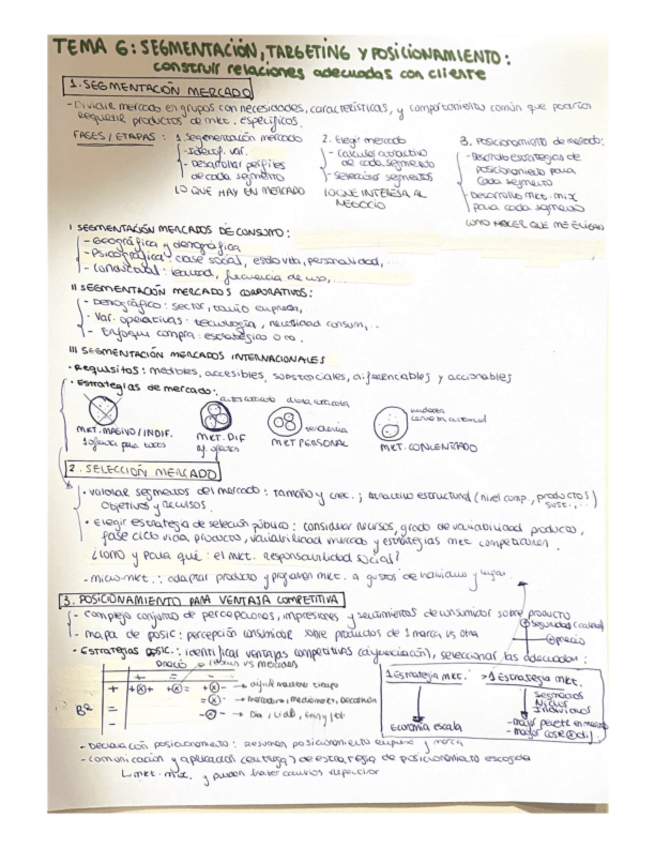 TEMA 6: SEGMENTACIÓN, TARGETING Y POSICIONAMIENTO:
construir relaciones adecuadas con cliente
1. SEGMENTACIÓN MERCADO
- Dividir mercado en grupos con necesidades, características, y comportamiento común que podrían
requerir productos de mkt. específicos.
FASES / ETAPAS: 1. Segmentación mercado
- Identif. var.
- Desarrollar perfiles
de cada segmento
LO QUE HAY EN MERCADO
2. Elegir mercado
- Calcular atractivo
de cada segmento
- Seleccionar segmentos
LO QUE INTERESA AL
NEGOCIO
3. Posicionamiento de mercado:
- Desarrollo estrategias de
posicionamiento para
cada segmento
- Desarrollo mkt. mix
para cada segmento
COMO HACER QUE ME ELIJAN
I SEGMENTACIÓN MERCADOS DE CONSUMO:
- Geográfica y demográfica
- Psicográfica: clase social, estilo vida, personalidad,...
- Conductual: lealtad, frecuencia de uso,...
II SEGMENTACIÓN MERCADOS CORPORATIVOS:
- Demográfico: sector, tamño empresa,
- Var. operativas: tecnología, necesidad consum,...
- Enfoque compra: estratégico o no.
III SEGMENTACIÓN MERCADOS INTERNACIONALES
· Requisitos: medibles, accesibles, sustanciales, diferenciables y accionables
· Estrategias de mercado:
MKT. MASIVO / INDIF.
1 oferta para todos
MKT. DIF
MKT PERSONAL
MKT. CONCENTRADO
2. SELECCIÓN MERCADO
· Valorar segmentos del mercado: tamaño y crec.; atractivo estructural (nivel comp., productos
sust.,...)
objetivos y recursos.
· Elegir estrategia de selección público: considerar recursos, grado de variabilidad producto,
fase ciclo vida producto, variabilidad mercado y estrategias mkt competidores.
¿Como y para qué: el mkt. responsabilidad social?
- micro-mkt.: adaptar producto y programa mkt. a gustos de individuo y lugar.
3. POSICIONAMIENTO PARA VENTAJA COMPETITIVA
- Complejo conjunto de percepciones, impresiones y sentimientos de consumidor sobre producto
- mapa de posic: percepción consumidor sobre productos de 1 marca vs otra
seguridad (calidad)
precio
· Estrategias posic.: identificar ventajas competitivas (diferenciación), seleccionar las adecuadas:
Precio
+ = -
+
=
-
1 Estrategia mkt. >1 Estrategia mkt.
Segmentos
Nichos
Individuos
Economía escala
- Declaración posicionamiento: resumen posicionamiento empresa y marca
- Comunicación y aplicación (entrega) de estrategia de posicionamiento escogida
mkt. mix. y pueden haber cambios